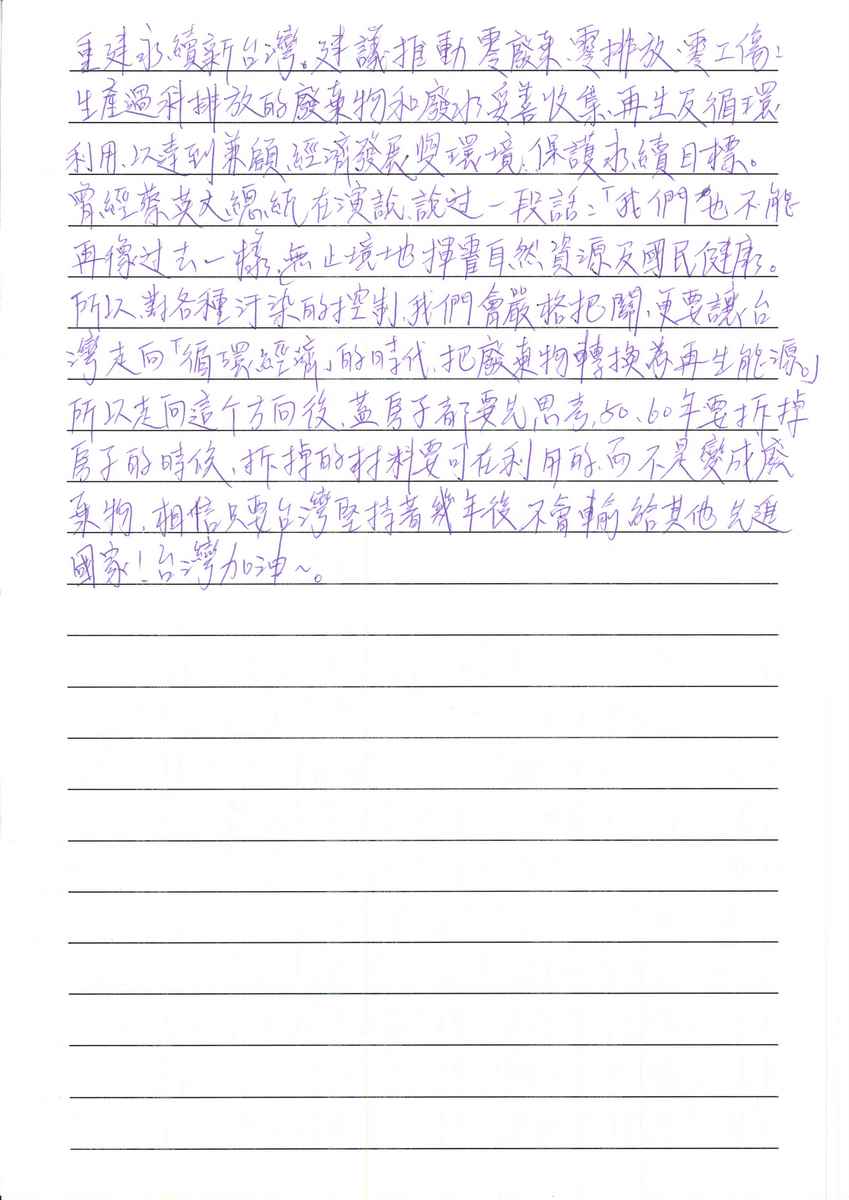 重建永續新台灣。建議推動零廢棄、零排放、零工傷!
生產過程排放的廢棄物和廢水妥善收集、再生及循環
利用、以達到兼顧經濟發展與環境、保護永續目標。
曾經蔡英文總統在演說、說过一段話:「我們也不能
再像过去一樣,無止境地揮霍自然資源及國民健康。
所以對各種汙染的控制、我們會嚴格把關、更要讓台
灣走向「循環經濟」的時代、把廢棄物轉換為再生能源。」
所以走向這个方向後、蓋房子都要先思考,50、60年要拆掉
房子的時候、拆掉的材料要可在利用的、而不是變成廢
棄物、相信只要台灣堅持著幾年後不會輸給其他先進
國家!台灣加油~。